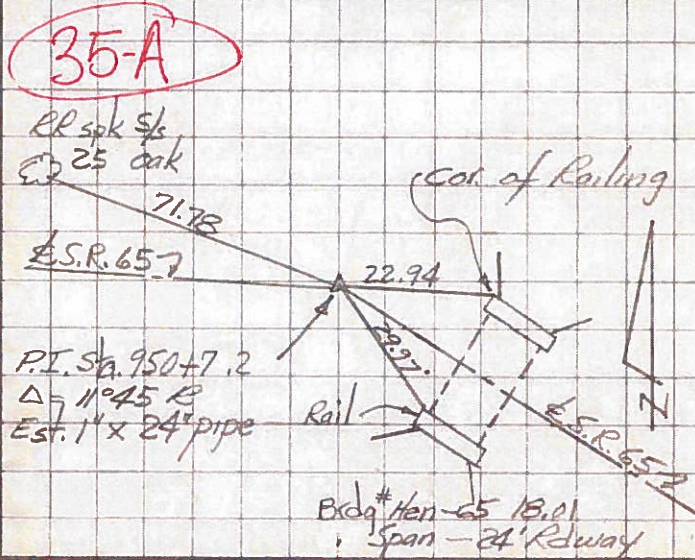 35-A
RR spk S/s
25" oak
71.78
℄ S.R. 657
cor. of Railing
22.94
29.97'
P.I. Sta. 950+7.2
Δ = 11°45 R
Est. 1" x 24" pipe
Rail
N
℄ S.R. 657
Brdg # Hen-65 18.01
Span - 24' Rdway